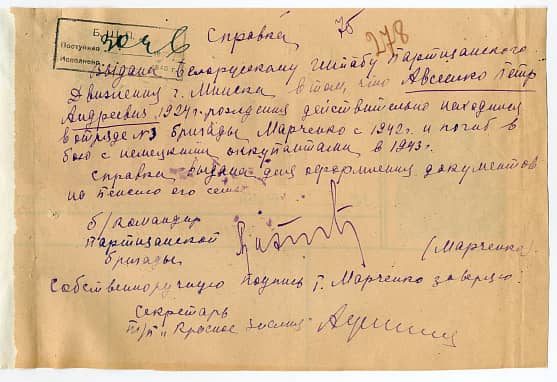 Справка
75
278
Б. Ш. П. Д.
Поступило 30 4
Исполнено
Выдана Белорусскому штабу Партизанского
Движения г. Минска в том, что Авсеенко Петр
Андреевич 1924 г. рождения действительно находился
в отряде №3 бригады Марченко с 1942 г. и погиб в
бою с немецкими оккупантами в 1943 г.
Справка выдана для оформления документов
на пенсию его семье
б/командир
Партизанской
бригады
(Марченко)
Собственноручную подпись т. Марченко заверяю:
Секретарь
п/п "Красное